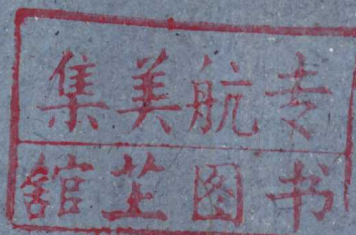 集美航专
舘图书